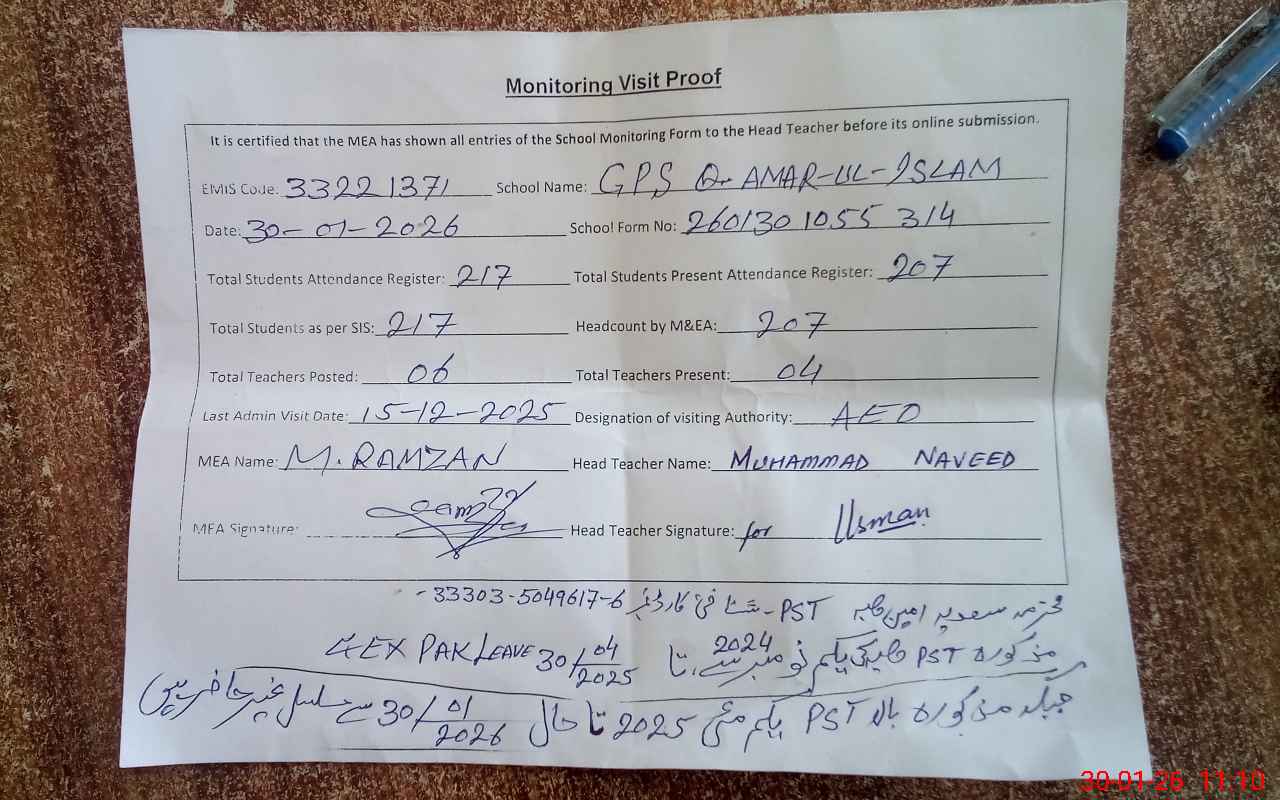 Monitoring Visit Proof
It is certified that the MEA has shown all entries of the School Monitoring Form to the Head Teacher before its online submission.
EMIS Code: 33221371 School Name: GPS QAMAR-UL-ISLAM
Date: 30-01-2026 School Form No: 260130 1055 314
Total Students Attendance Register: 217 Total Students Present Attendance Register: 207
Total Students as per SIS: 217 Headcount by M&EA: 207
Total Teachers Posted: 06 Total Teachers Present: 04
Last Admin Visit Date: 15-12-2025 Designation of visiting Authority: AEO
MEA Name: M. RAMZAN Head Teacher Name: MUHAMMAD NAVEED
MEA Signature: Head Teacher Signature: for Usman
محترمہ سعدیہ امین صاحبہ PST - شناختی کارڈ نمبر 33303-5049617-6
مذکورہ PST کی یکم نومبر 2024 سے تا 30/04/2025 EX PAK LEAVE
جبکہ مذکورہ بالا PST یکم مئی 2025 تا حال 30/01/2026 سے مسلسل غیر حاضر ہیں
30-01-26 11:10